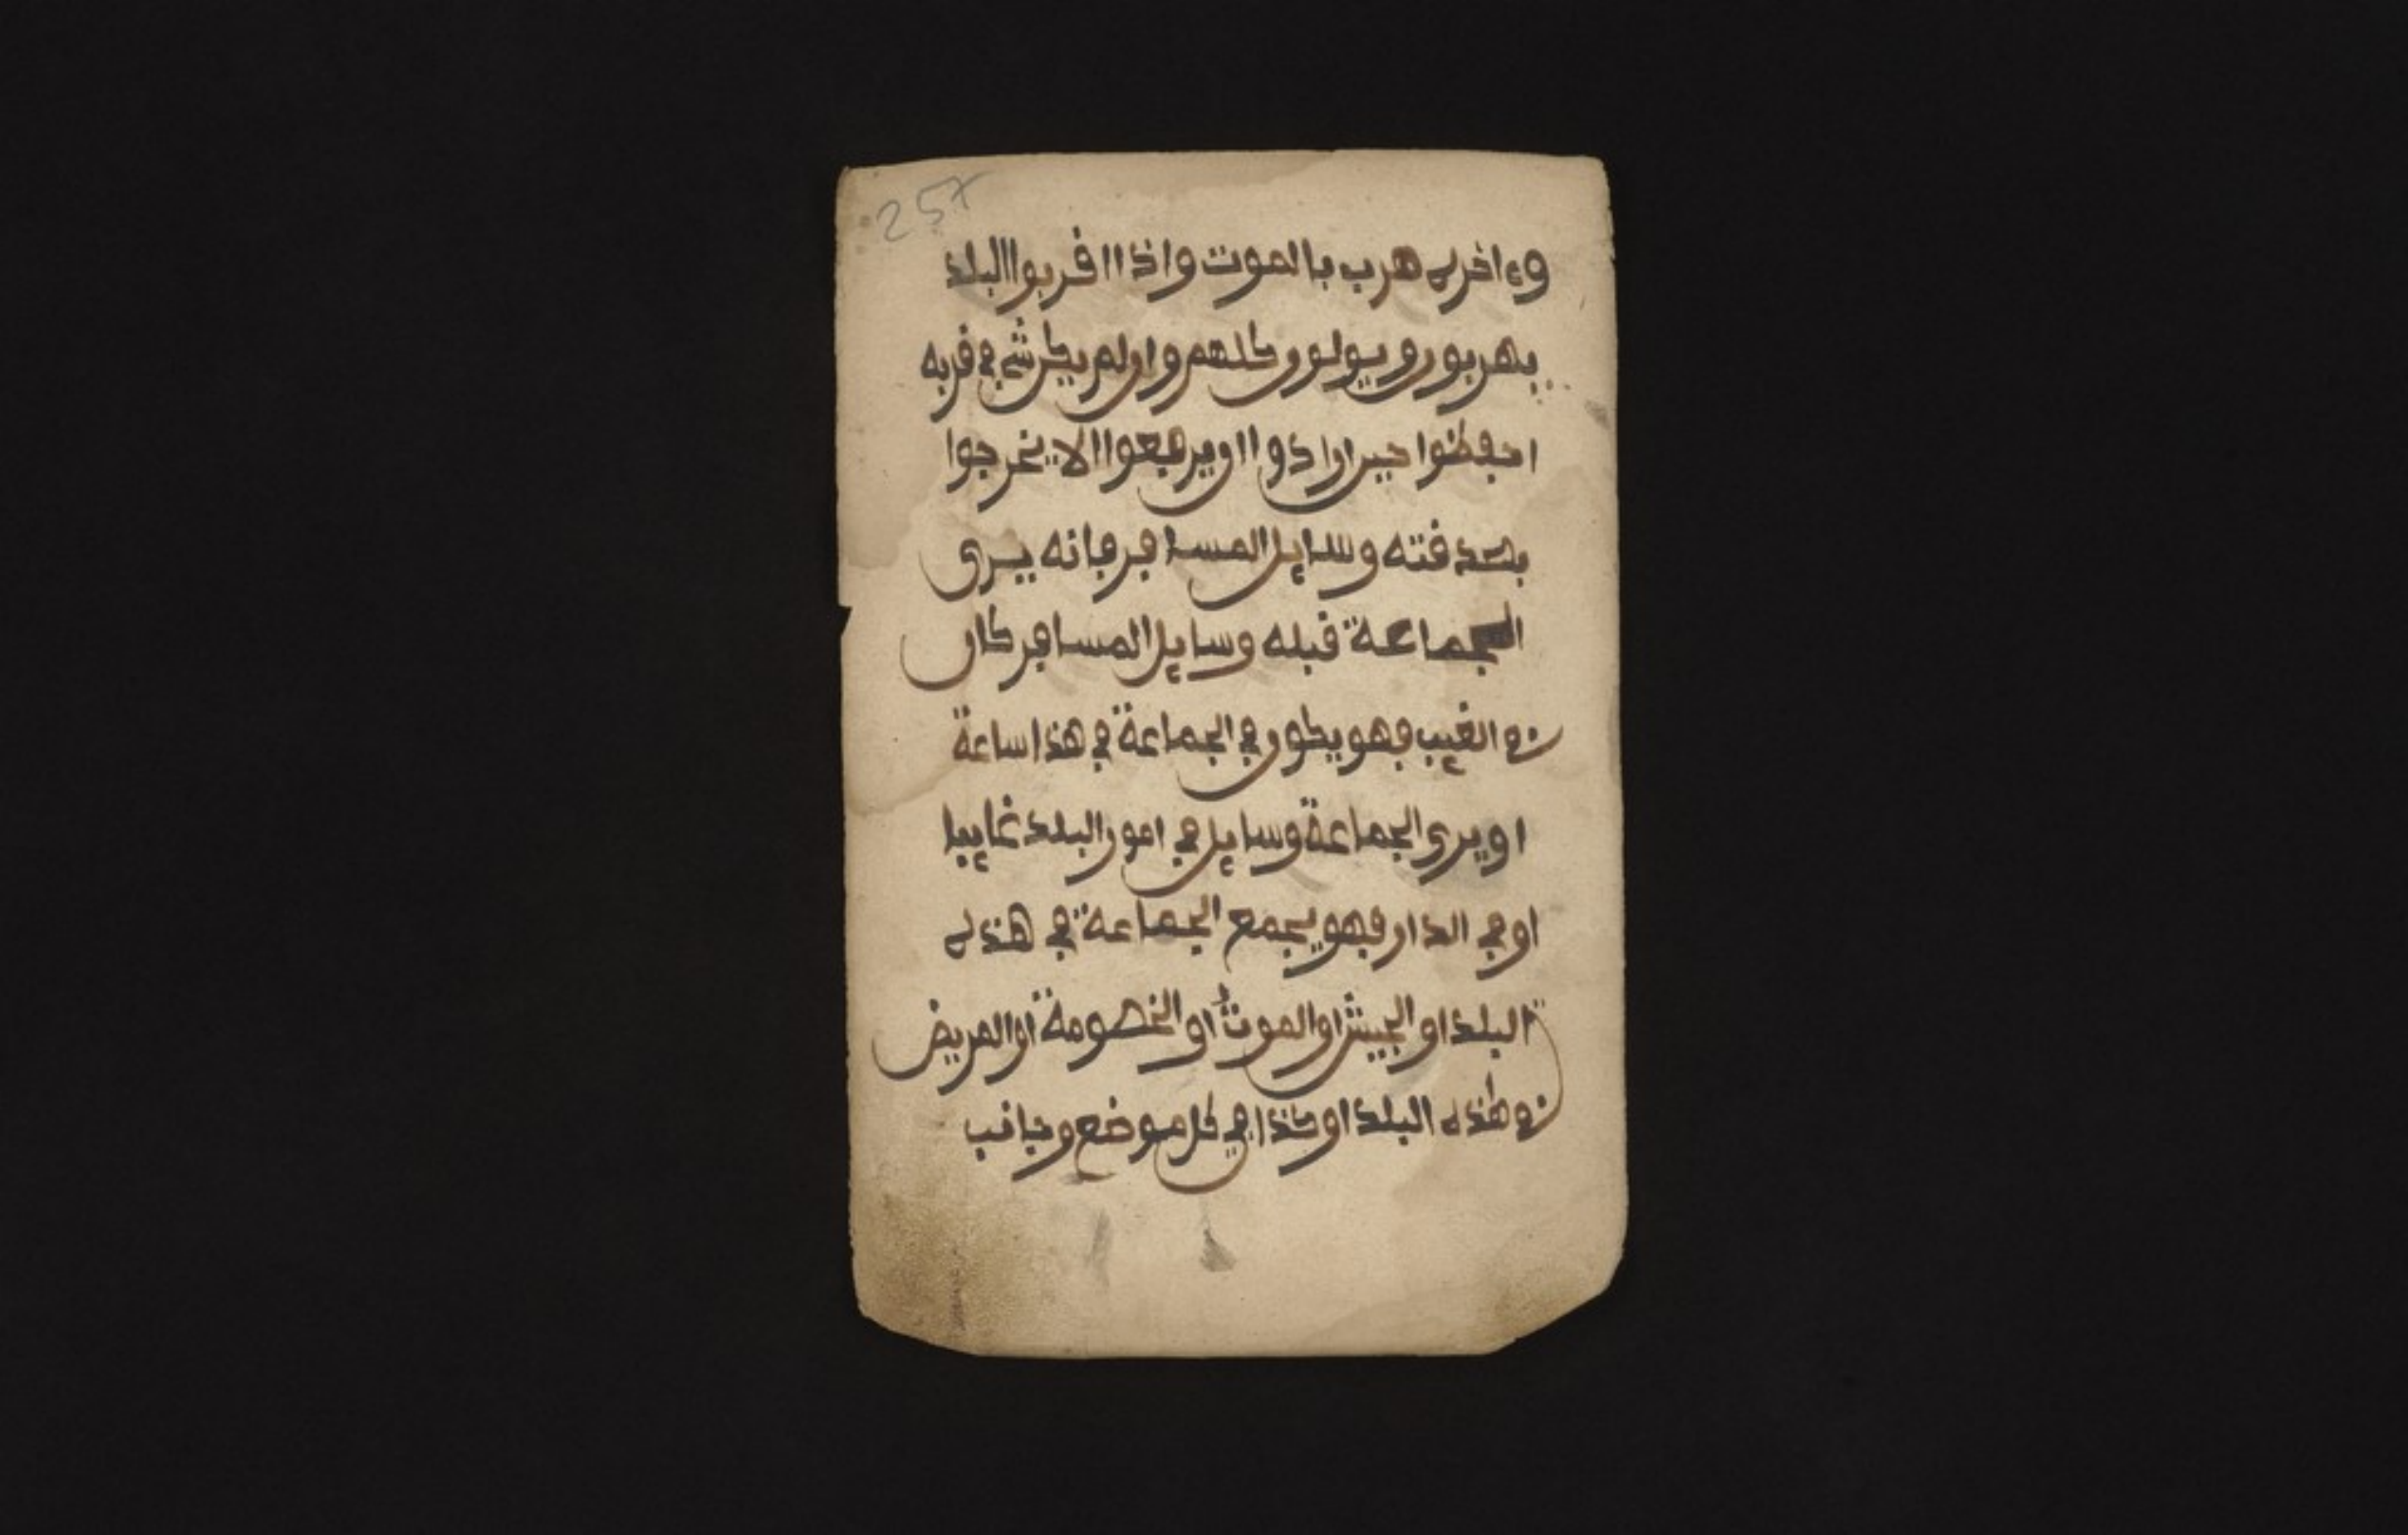 257
وءاخره هرب بالموت واذا اقربوا البلد
يهربون ويولون كلهم وان لم يكن شيء في قربه
احفظوا حين ارادوا اويرجعوا الا يخرجوا
بعد قتله وسايل المسافر فانه يرى
الجماعة قبله وسايل المسافر كان
في الغيب فهو يكون في الجماعة في هذا ساعة
او يرى الجماعة وسايل في امور البلد غايبا
او في الدار فهو يجمع الجماعة في هذه
البلد او الجيش او الموت او الخصومة او المريض
في هذه البلد او كذا في كل موضع وجانب